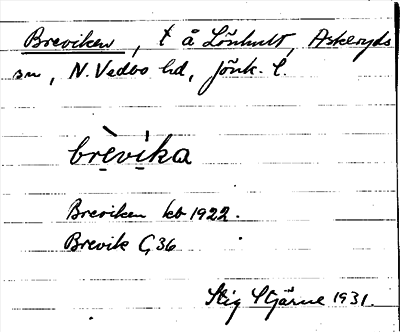 Breviken, t å Lönhult, Askeryds
sn, N. Vedbo hd, Jönk. l.
brèvika
Breviken kb 1922.
Brevik G 36
Stig Stjärne 1931.